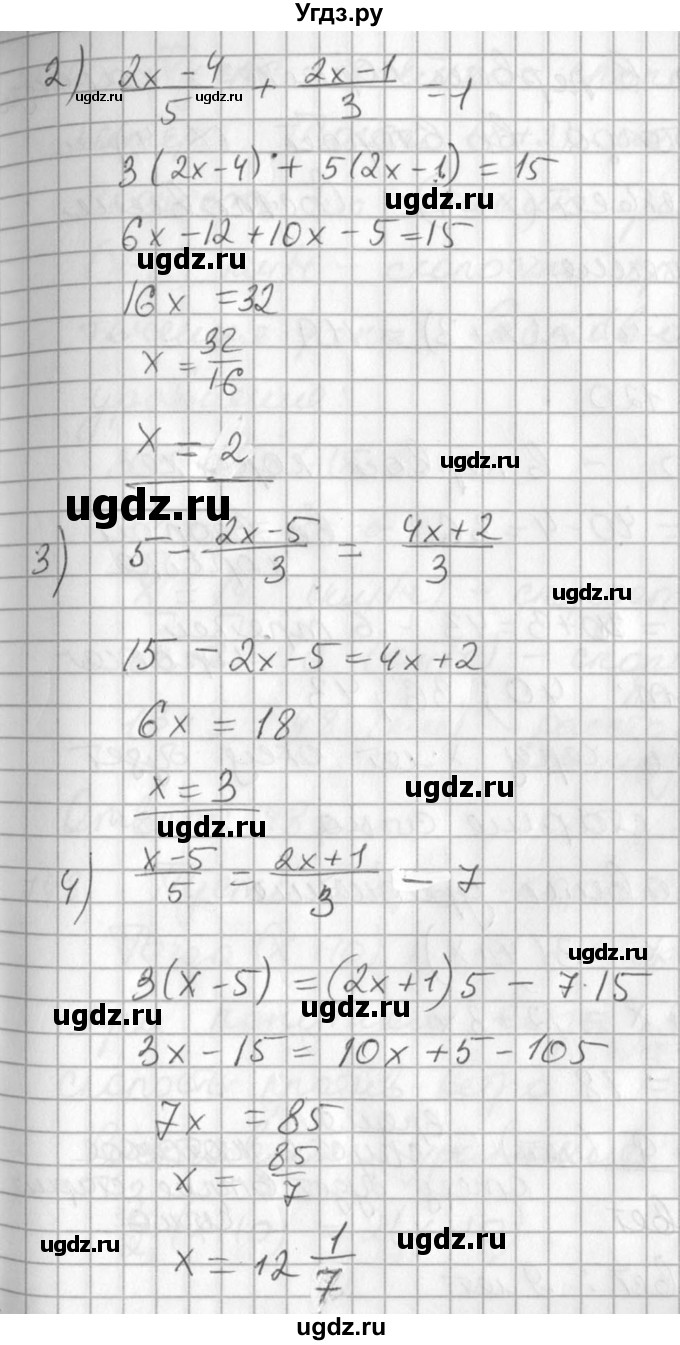 Угдз.ру
2) (2x - 4)/5 + (2x - 1)/3 = 1
ugdz.ru ugdz.ru
3(2x - 4) + 5(2x - 1) = 15
ugdz.ru
6x - 12 + 10x - 5 = 15
ugdz.ru
16x = 32
x = 32/16
x = 2
ugdz.ru
ugdz.ru
3) 5 - (2x - 5)/3 = (4x + 2)/3
ugdz.ru
15 - 2x - 5 = 4x + 2
6x = 18
x = 3
ugdz.ru
ugdz.ru
4) (x - 5)/5 = (2x + 1)/3 - 7
ugdz.ru
3(x - 5) = (2x + 1)5 - 7·15
ugdz.ru ugdz.ru
3x - 15 = 10x + 5 - 105
7x = 85
x = 85/7
ugdz.ru ugdz.ru
x = 12 1/7
ugdz.ru